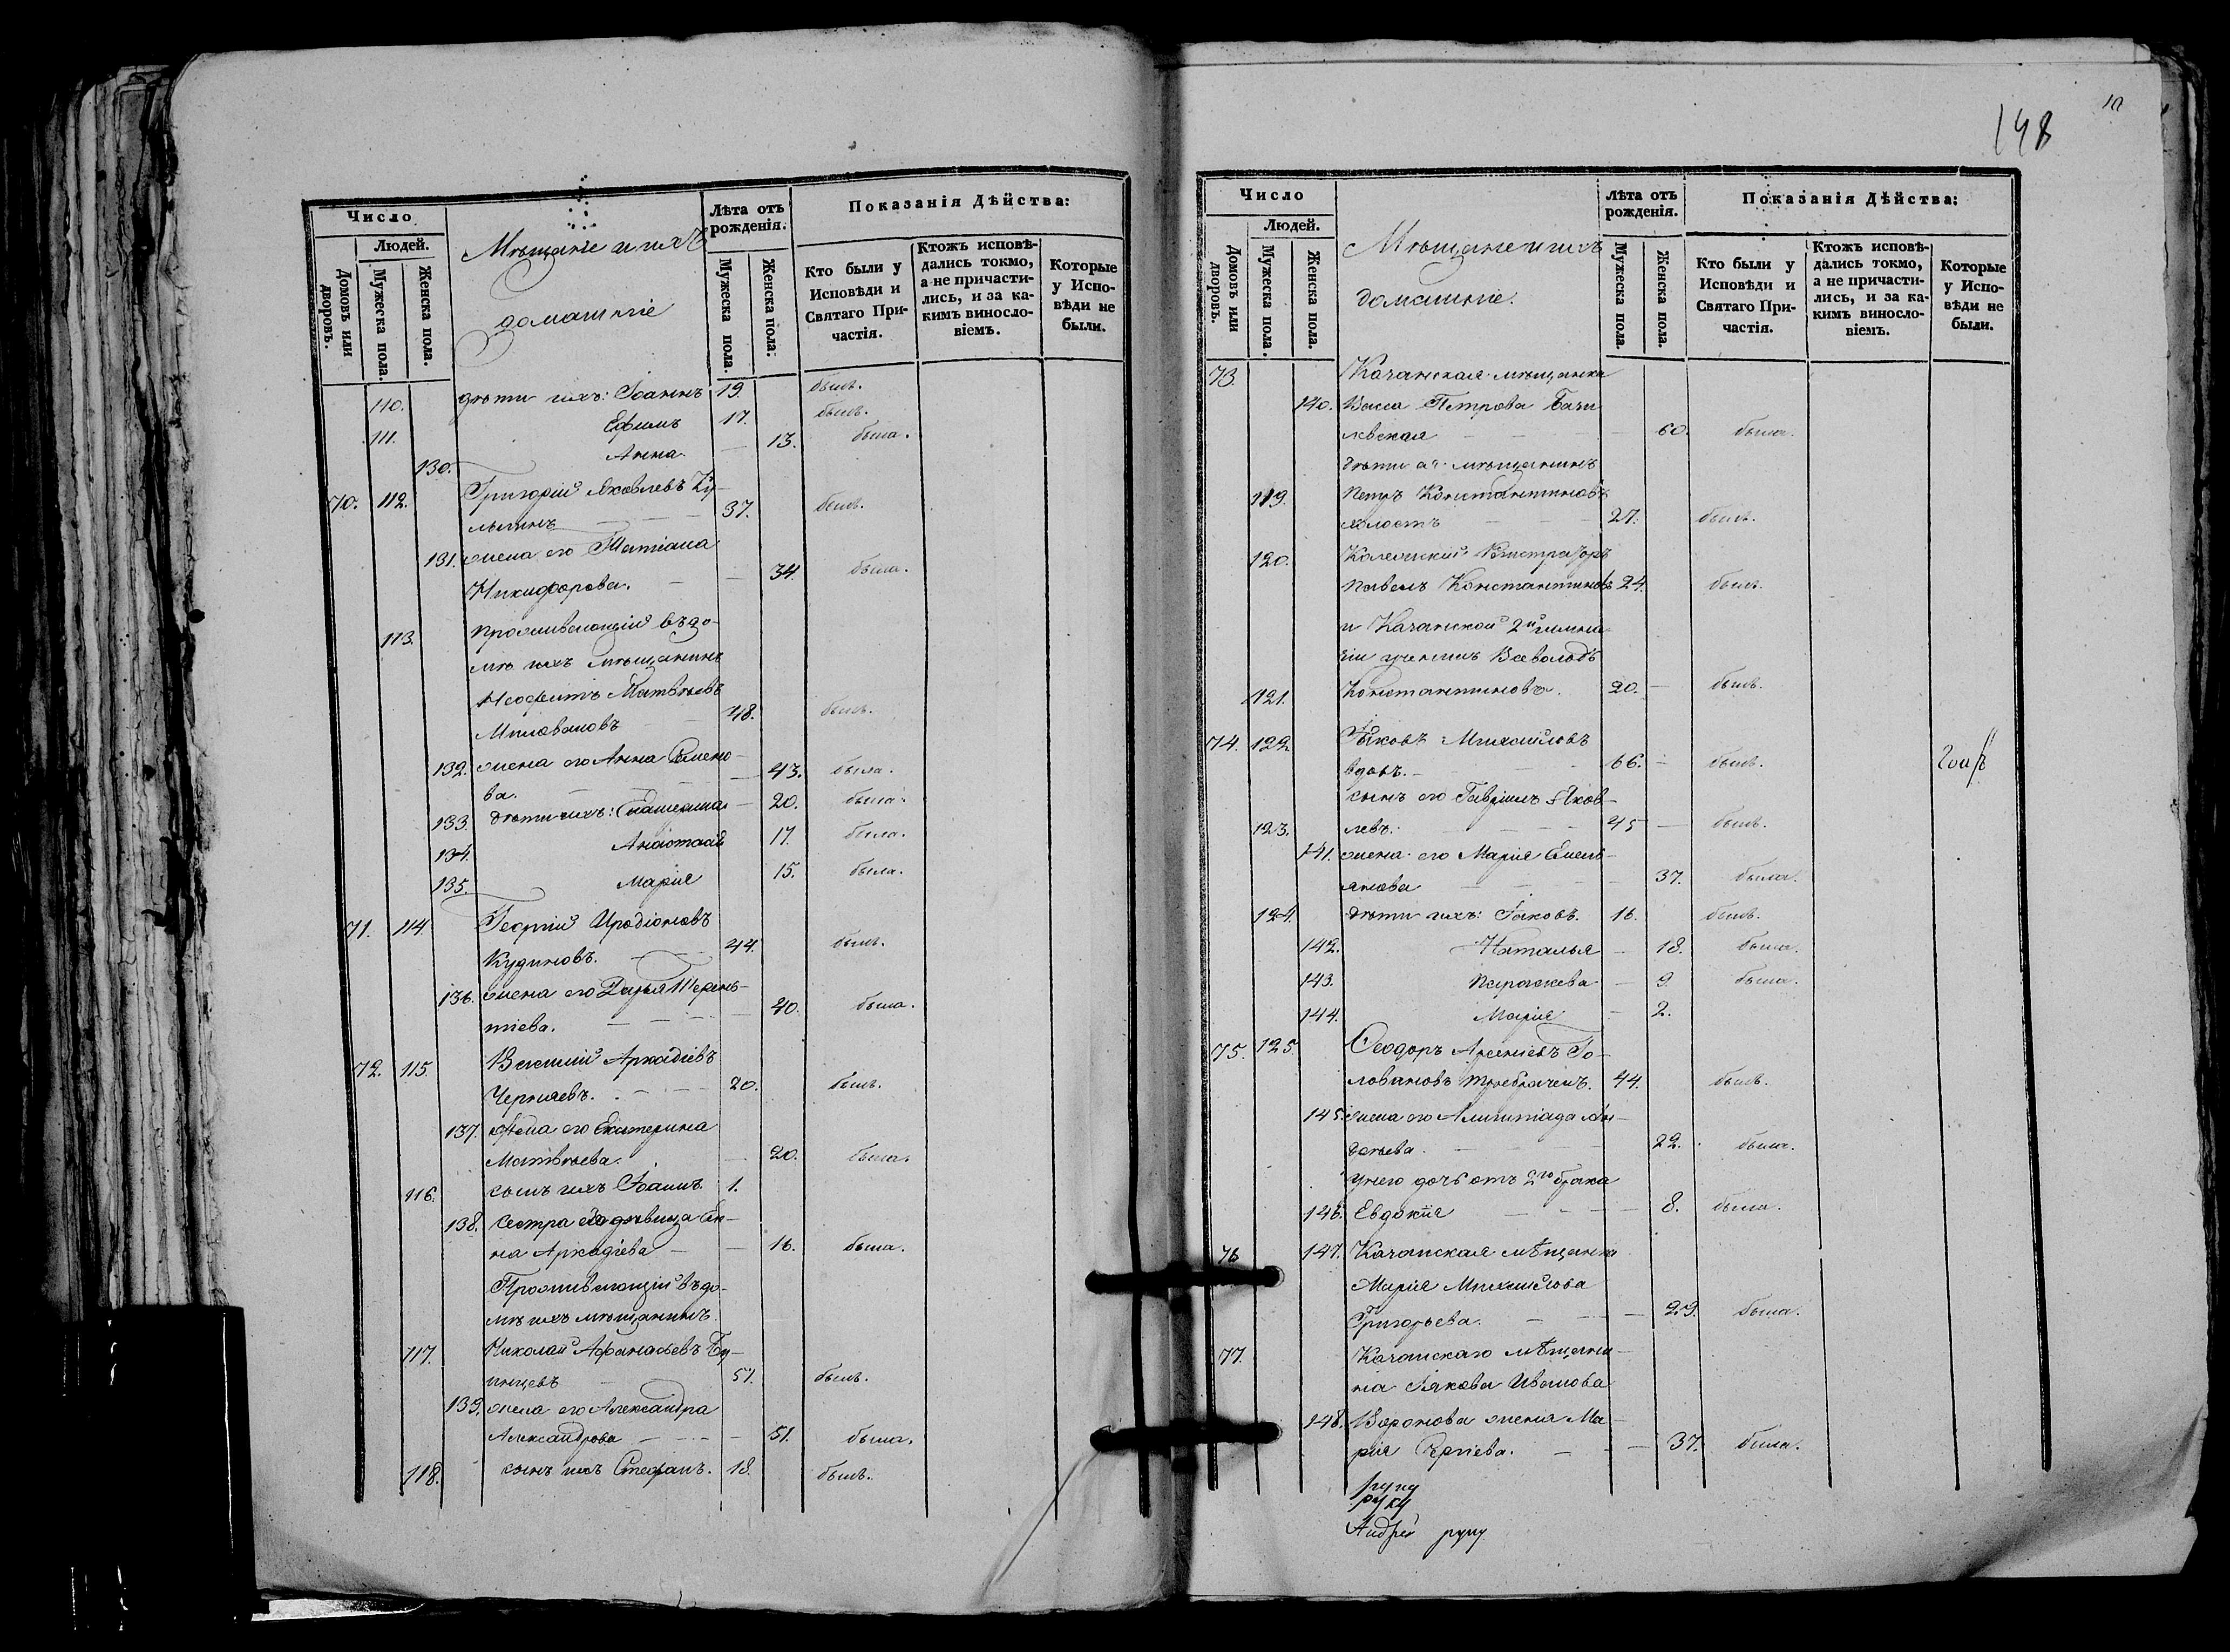 Число
Людей.
Домовъ или дворовъ.
Мужеска пола.
Женска пола.
Мѣщане и ихъ
домашніе
Лѣта отъ рожденія.
Мужеска пола.
Женска пола.
Показанія Дѣйства:
Кто были у Исповѣди и Святаго Причастія.
Ктожъ исповѣдались токмо, а не причастились, и за какимъ винословіемъ.
Которые у Исповѣди не были.
110. дѣти ихъ: Іоаннъ 19. былъ.
111. Ефимъ 17. былъ.
130. Анна — 13. была.
70. 112. Григорій Яковлевъ
37. былъ.
131. жена его Татіана
Никифорова. — — 34. была.
113. Проживающій въ до-
мѣ ихъ мѣщанинъ
Неофитъ Матвѣевъ
Миловановъ — 48. былъ.
132. жена его Анна Семено-
ва. — — 43. была.
133. дѣти ихъ: — 20. была.
134. 17. была.
135. Марія 15. была.
71. 114. Георгій Иродіоновъ
Кудиновъ. — — 44. былъ.
136. жена его Дарья Терень-
тіева. — — — 40. была.
72. 115. Василій Аркадіевъ
Черняевъ. — — 20. былъ.
137. жена его Екатерина
Матвѣева. — 20. была.
116. сынъ ихъ Іоаннъ. 1.
138. Сестра его дѣвица
на Аркадіева — — 16. была.
Проживающій въ до-
мѣ ихъ мѣщанинъ
117. Николай Афанасьевъ
51. былъ.
139. жена его Александра
Александрова — — — 51. была.
118. сынъ ихъ Стефанъ. 18. былъ.
148
Число
Людей.
Домовъ или дворовъ.
Мужеска пола.
Женска пола.
Мѣщане и ихъ
домашніе.
Лѣта отъ рожденія.
Мужеска пола.
Женска пола.
Показанія Дѣйства:
Кто были у Исповѣди и Святаго Причастія.
Ктожъ исповѣдались токмо, а не причастились, и за какимъ винословіемъ.
Которые у Исповѣди не были.
73. Казанская мѣщанка
140. Васса Петрова Бачи
левская — — — 60. была.
дѣти ея: мѣщанинъ
119. Петръ Константиновъ
холостъ — — 27. былъ.
120. Колежскій Регистраторъ
Павелъ Константиновъ 24. былъ.
и Казанской 2й гимна-
зіи ученикъ Всеволодъ
121. Константиновъ. 20. — былъ.
74. 122. Іаковъ Михайловъ
вдовъ. — — 66. — былъ.
сынъ его Гавріилъ Яков-
123. левъ. — — — 45 — былъ.
141. жена его Марія Емель-
янова — — — 37. была.
124. дѣти ихъ: Іаковъ. 16. былъ.
142. Наталья — 18. была.
143. Параскева — 9. была.
144. Марія — 2.
75. 125. Ѳеодоръ Арсеніевъ Го-
ловановъ троебраченъ. 44. былъ.
145. жена его Алимпіада
22. была.
у него дочь отъ 2го брака
146. Евдокія — — — 8. была.
76 147. Казанская мѣщанка
Марія Михайлова
Григорьева. — — — 29. была.
77. Казанскаго мѣщани-
на Іакова Иванова
148. Воронова жена Ма-
рія Сергіева. — — 37. была.
руку
руку
Андрей руку